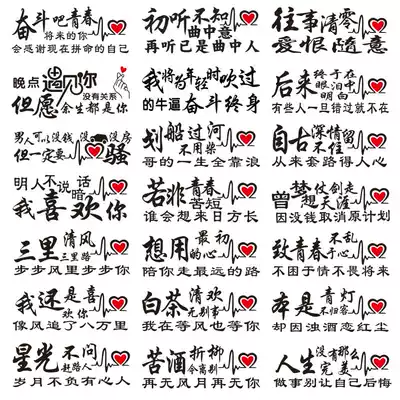 奋斗吧青春
将来的你
会感谢现在拼命的自己
初听不知
曲中意
再听已是曲中人
往事清零
爱恨随意
晚点遇见你
没有关系
但愿余生都是你
我将为年轻时吹过
的牛逼奋斗终身
后来终于在
眼泪中
明白
有些人一旦错过就不在
男人可以没钱没车没房
但一定要骚
划船过河
不用桨
哥的一生全靠浪
自古深情留
不住
从来套路得人心
明人不说暗话
我喜欢你
若非青春
苦短
谁会想来日方长
曾梦想仗剑走
天涯
因没钱取消原计划
三里清风
三里路
步步风里步步你
想用最初
的心
陪你走最远的路
致青春不乱
于心
不困于情不畏将来
我还是喜
欢你
像风追了八万里
白茶清欢
无别事
我在等风也等你
本是青灯
不归客
却因浊酒恋红尘
星光不问
赶路人
岁月不负有心人
苦酒折柳
今离别
再无风月再无你
人生没有那么
完美
做事别让自己后悔